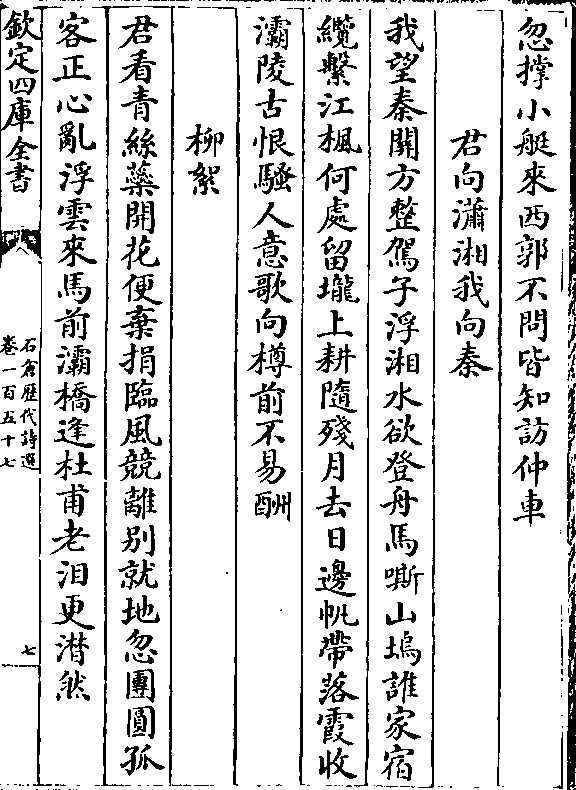 忽撑小艇來西郭不問皆知訪仲車
君向瀟湘我向秦
我望秦關方整駕子浮湘水欲登舟馬嘶山塢誰家宿
纜繫江楓何處留壠上耕隨殘月去日邊帆帶落霞收
灞陵古恨騷人意歌向樽前不易酬
柳絮
君看青絲蘂開花便棄捐臨風競離别就地忽團圓孤
客正心亂浮雲來馬前灞橋逢杜甫老泪更潸然
欽定四庫全書
石倉歴代詩選
卷一百五十七
七